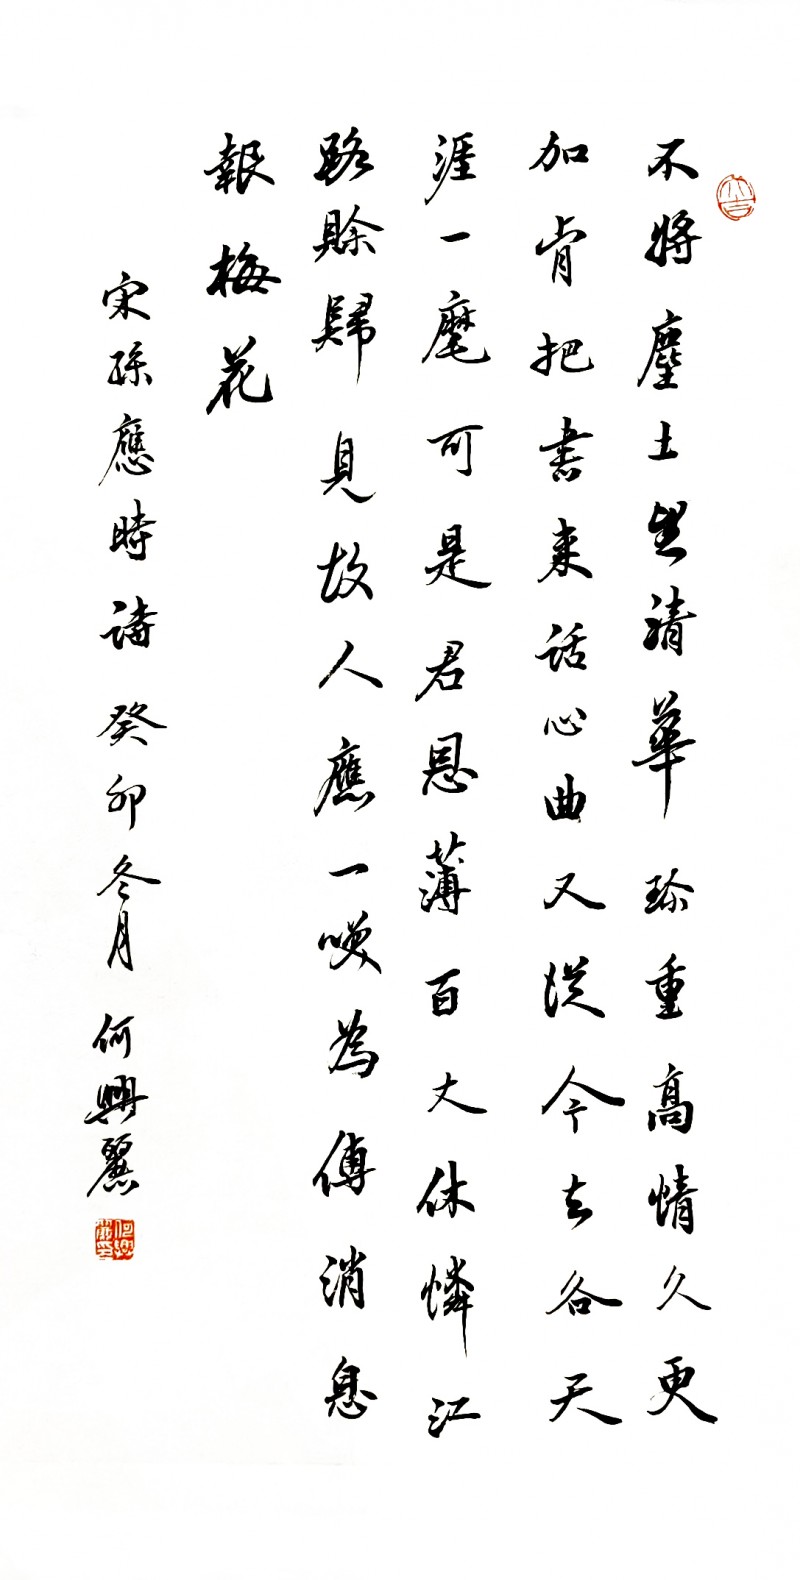 不將塵土清華珍重高情久更
加肯把書来話心曲又從今去各天
涯一麾可是君恩薄百丈休憐江
路賒歸見故人應一咲為傳消息
報梅花
宋孫應時詩癸卯冬月何興麗